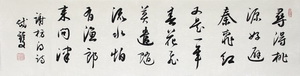 尋得桃
源好避
秦桃紅
又是一年
春花飛
莫遣隨
流水怕
有漁郎
來問津
謝枋得詩